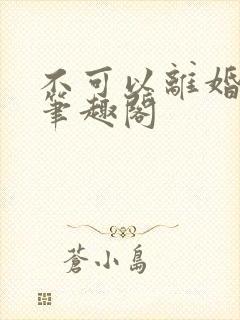 不可以離婚
筆趣閣
蒼小島